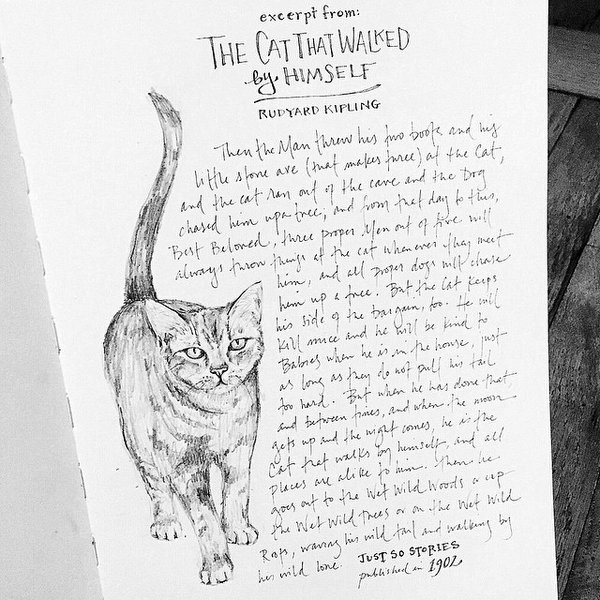 excerpt from:
THE CAT THAT WALKED
by HIMSELF
RUDYARD KIPLING
Then the Man threw his two boots and his
little stone axe (that makes three) at the Cat,
and the cat ran out of the cave and the Dog
chased him up a tree; and from that day to this,
Best Beloved, three proper Men out of five will
always throw things at the cat whenever they meet
him, and all proper dogs will chase
him up a tree. But the Cat keeps
his side of the bargain, too. He will
kill mice and he will be kind to
Babies when he is in the house, just
as long as they do not pull his tail
too hard. But when he has done that,
and between times, and when the moon
gets up and the night comes, he is the
Cat that walks by himself, and all
places are alike to him. Then he
goes out to the Wet Wild Woods or up
the Wet Wild Trees or on the Wet Wild
Roofs, waving his wild tail and walking by
his wild lone.
JUST SO STORIES
published in 1902